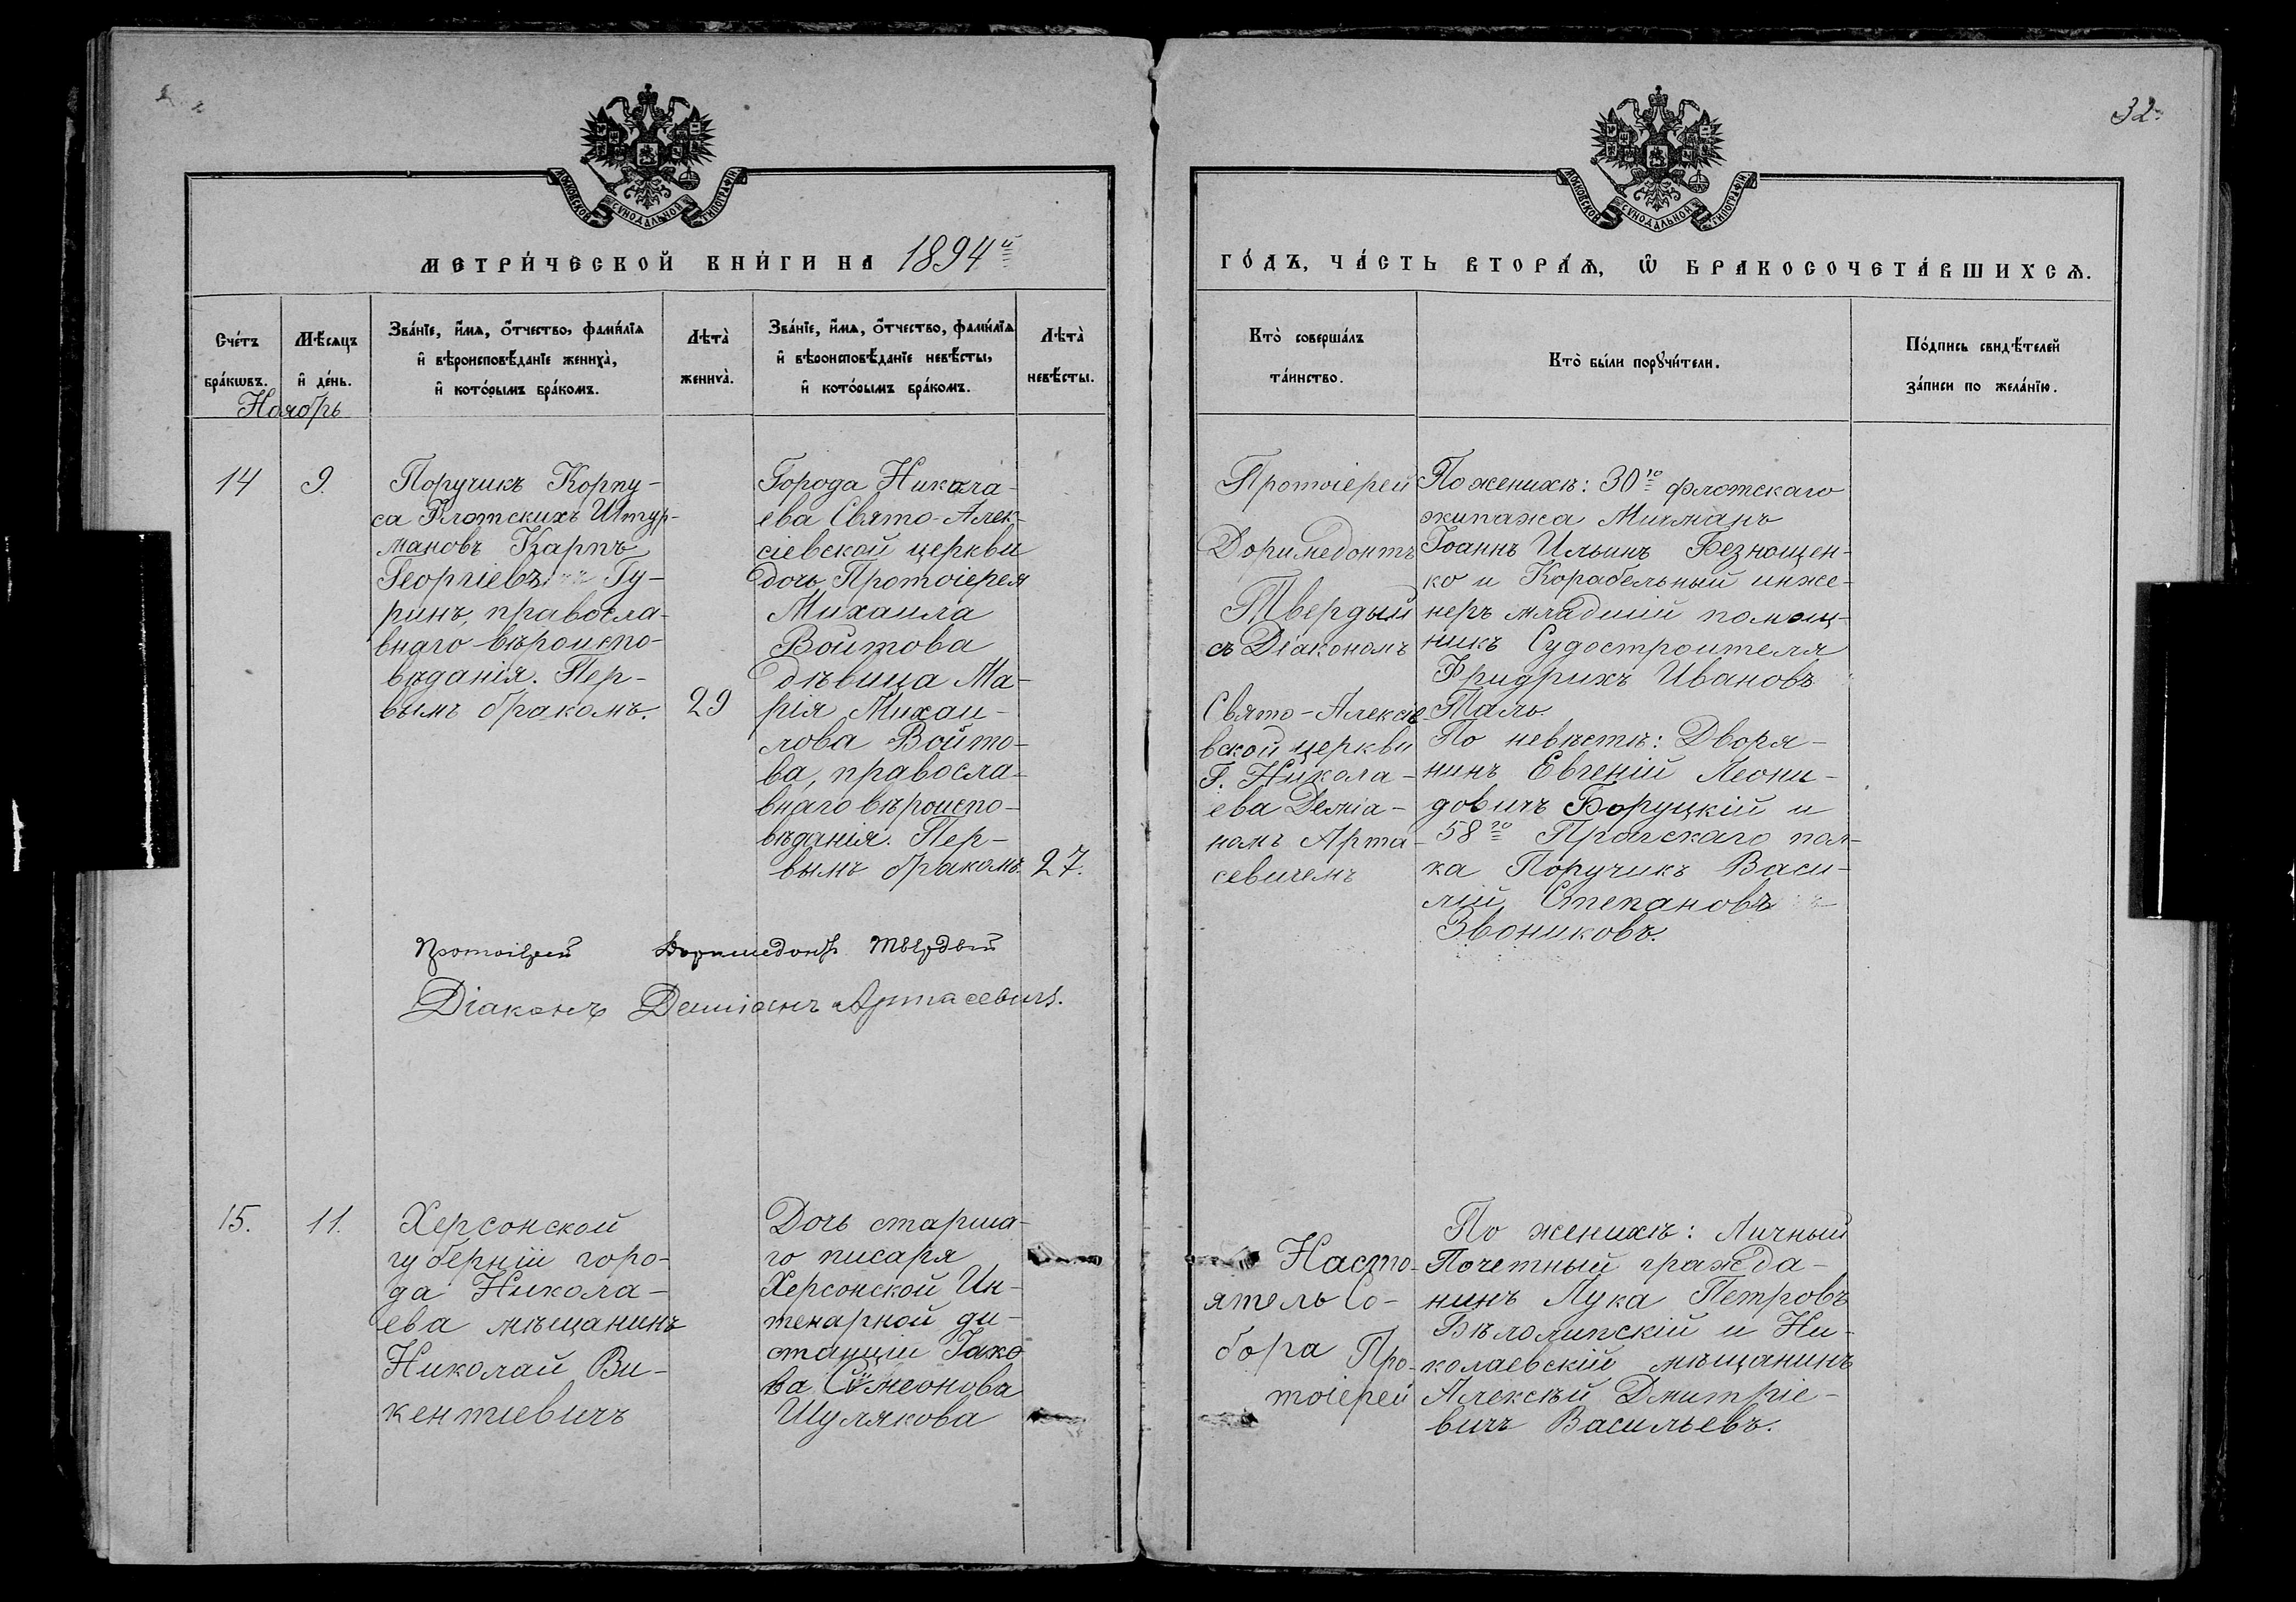 МОСКОВСКОЙ СѴНОДАЛЬНОЙ ТИПОГРАФІИ
МЕТРИ́ЧЕСКОЙ КНИ́ГИ НА 1894й
Сче́тъ
бра́кѡвъ.
Мѣ́сяцъ
и҆ де́нь.
Зва́нїе, и҆́мѧ, ѻ҆́тчество, фами́лїѧ
и҆ вѣроисповѣ́данїе жениха̀,
и҆ кото́рымъ бра́комъ.
Лѣта̀
жениха̀.
Зва́нїе, и҆́мѧ, ѻ҆́тчество, фами́лїѧ
и҆ вѣроисповѣ́данїе невѣ́сты,
и҆ кото́рымъ бра́комъ.
Лѣта̀
невѣ́сты.
Ноябрь
14
9.
Поручикъ Корпу-
са Флотскихъ Штур-
мановъ Карпъ
Георгіевъ Гу-
ринъ, правосла-
внаго вѣроиспо-
вѣданія. Пер-
вымъ бракомъ.
29
Города Никола-
ева Свято-Алек-
сіевской церкви
дочь Протоіерея
Михаила
Войтова
дѣвица Ма-
рія Михаи-
лова Войто-
ва, правосла-
внаго вѣроиспо-
вѣданія. Пер-
вымъ бракомъ.
27.
Протоіерей Доримедонтъ Твердый
Діаконъ Деміанъ Артасевичъ.
15.
11.
Херсонской
губерніи горо-
да Никола-
ева мѣщанинъ
Николай Ви-
кентіевичъ
Дочь старша-
го писаря
Херсонской Ин-
тенарной ди-
станціи Іако
ва Сѵмеонова
Шулякова
32
МОСКОВСКОЙ СѴНОДАЛЬНОЙ ТИПОГРАФІИ
ГО́ДЪ, ЧА́СТЬ ВТОРА́Ѧ, Ѡ҆ БРАКОСОЧЕТА́ВШИХСѦ.
Кто̀ соверша́лъ
та́инство.
Кто̀ бы́ли порꙋчи́тели.
По́дпись свидѣ́телей
за́писи по жела́нїю.
Протоіерей
Доримедонтъ
Твердый
съ Діакономъ
Свято-Алексіе
вской церкви
г. Никола-
ева Деміа-
номъ Арта-
севичемъ
По женихѣ: 30го флотскаго
экипажа Мичманъ
Іоаннъ Ильинъ Безнощен-
ко и Корабельный инже-
неръ младшій помощ-
никъ Судостроителя
Фридрихъ Ивановъ
Таль.
По невѣстѣ: Дворя-
нинъ Евгеній Леони-
довичъ Боруцкій и
58го Прагскаго пол-
ка Поручикъ Васи-
лій Степановъ
Звониковъ.
Насто-
ятель Со-
бора Про-
тоіерей
По женихѣ: Личный
Почетный гражда-
нинъ Лука Петровъ
Бѣлолипскій и Ни-
колаевскій мѣщанинъ
Алексѣй Дмитріе-
вичъ Васильевъ.